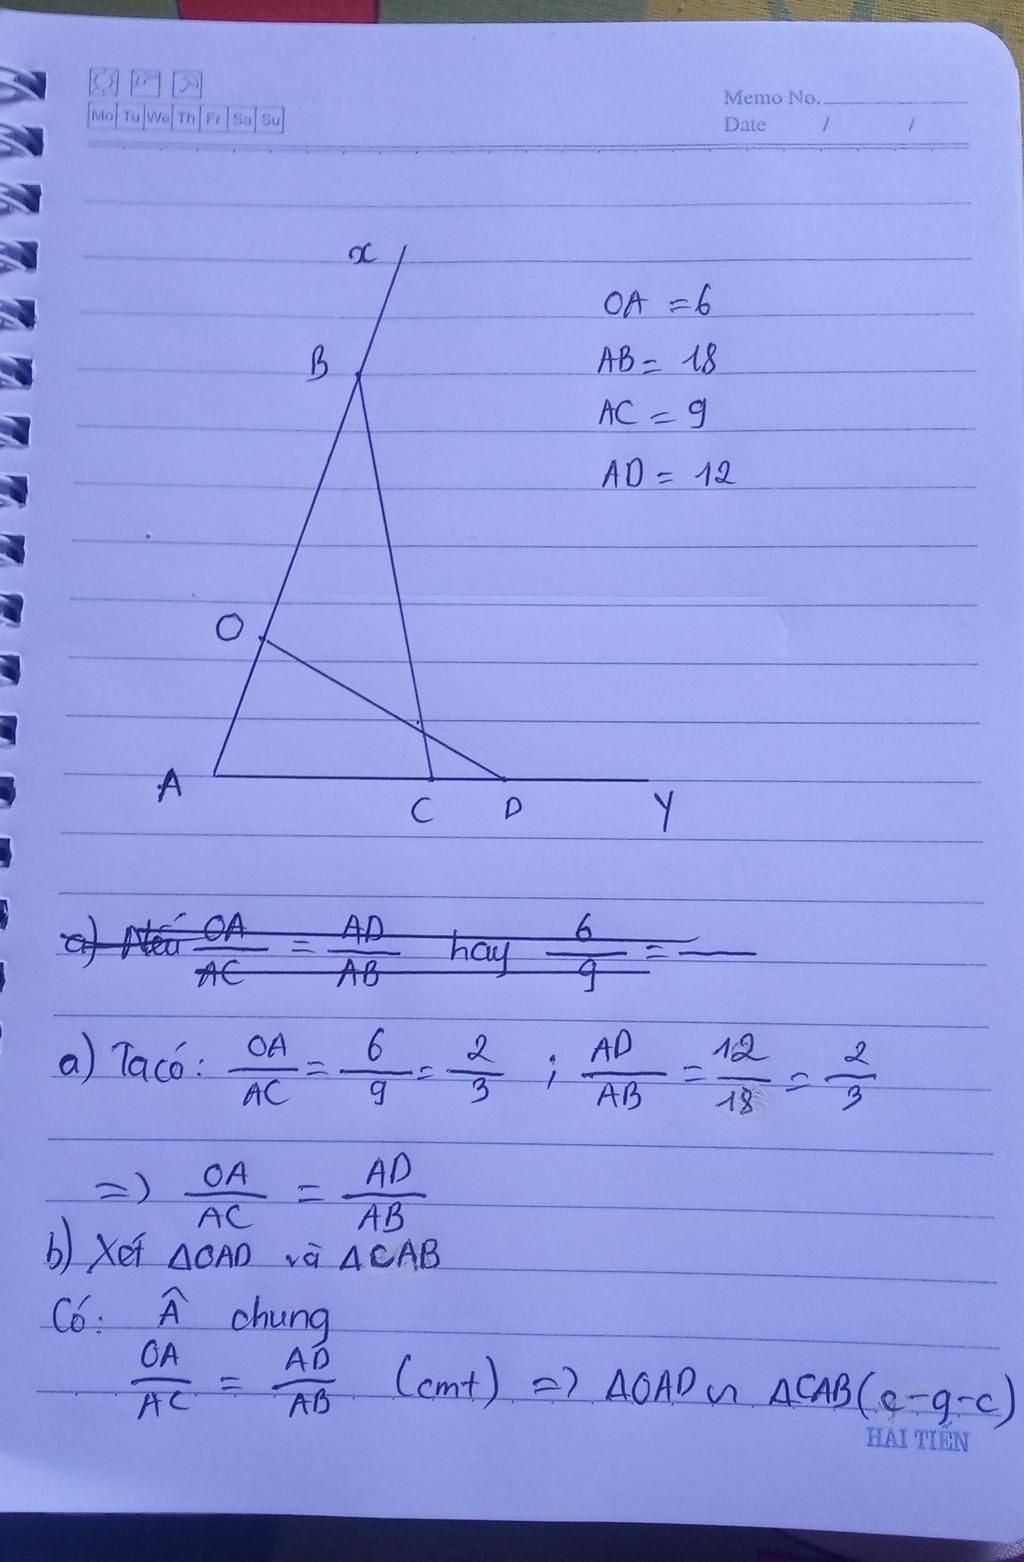 Memo No.
Mo Tu We Th Fr Sa Su
Date / /
x
OA = 6
B
AB = 18
AC = 9
AD = 12
O
A
C D Y
a) Nếu OA/AC = AD/AB hay 6/9 =
a) Ta có: OA/AC = 6/9 = 2/3 ; AD/AB = 12/18 = 2/3
=> OA/AC = AD/AB
b) Xét ΔOAD và ΔCAB
Có: Â chung
OA/AC = AD/AB (cmt) => ΔOAD ∽ ΔCAB (c-g-c)
HẢI TIẾN